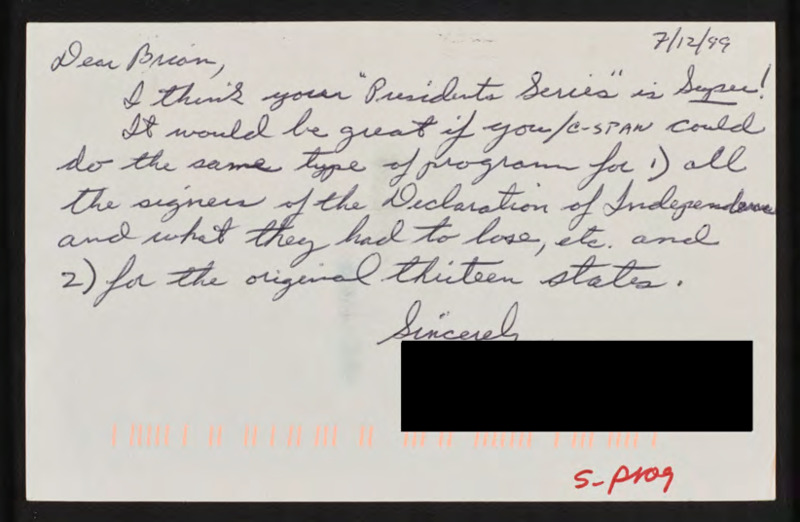 7/12/99
Dear Brian,
I think your "Presidents Series" is Super!
It would be great if you/C-SPAN could
do the same type of program for 1) all
the signers of the Declaration of Independence
and what they had to lose, etc. and
2) for the original thirteen states.
Sincerely
S-prog